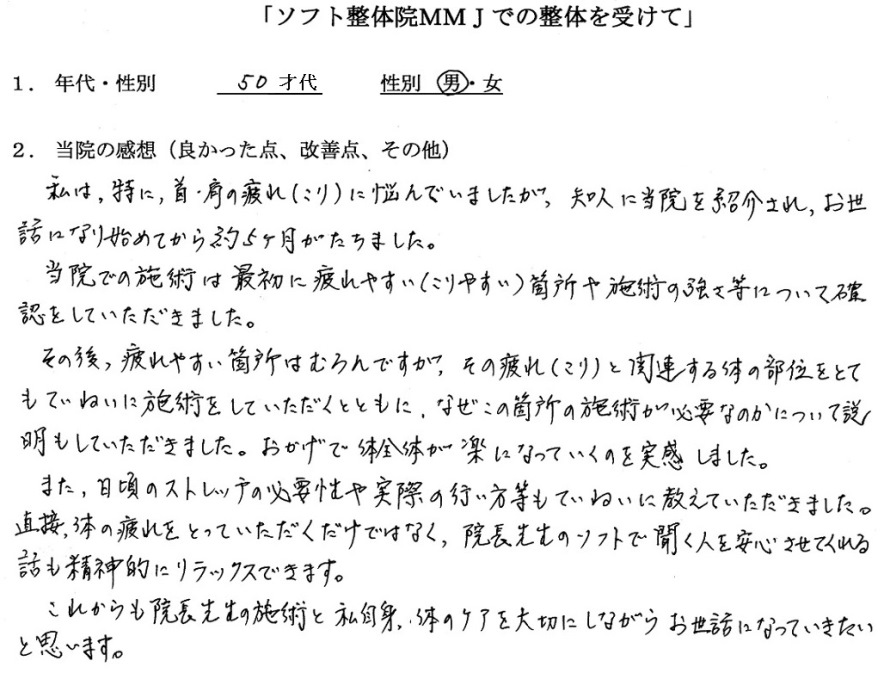 「ソフト整体院MMJでの整体を受けて」
1. 年代・性別 50 才代 性別 男・女
2. 当院の感想（良かった点、改善点、その他）
私は，特に，首・肩の疲れ(こり)に悩んでいましたが，知人に当院を紹介され，お世
話になり始めてから約5ヶ月がたちました。
当院での施術は最初に疲れやすい(こりやすい)箇所や施術の強さ等について確
認をしていただきました。
その後，疲れやすい箇所はむろんですが，その疲れ(こり)と関連する体の部位をとて
もていねいに施術をしていただくとともに，なぜこの箇所の施術が必要なのかについて説
明もしていただきました。おかげで体全体が楽になっていくのを実感しました。
また，日頃のストレッチの必要性や実際の行い方等もていねいに教えていただきました。
直接，体の疲れをとっていただくだけではなく，院長先生のソフトで聞く人を安心させてくれる
話も精神的にリラックスできます。
これからも院長先生の施術と私自身，体のケアを大切にしながらお世話になっていきたい
と思います。